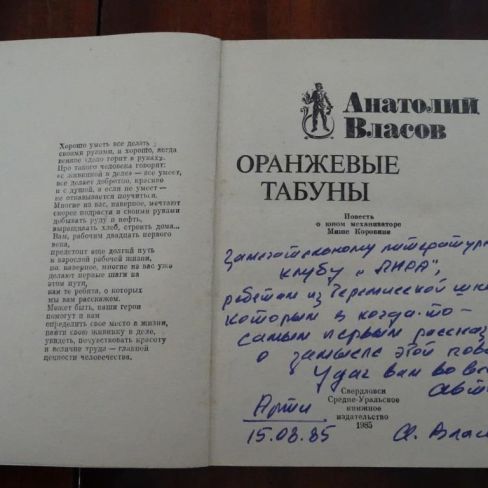 Хорошо уметь все делать
своими руками, и хорошо, когда
всякое дело горит в руках.
Про такого человека говорят:
«с живинкой в деле» — все умеет,
все делает добротно, красиво
и с душой, а если не умеет —
не отказывается поучиться.
Многие из вас, наверное, мечтают
скорее подрасти и своими руками
добывать руду и нефть,
выращивать хлеб, строить дома...
Вам, рабочим двадцать первого
века,
предстоит еще долгий путь
к взрослой рабочей жизни,
но, наверное, многие из вас уже
делают первые шаги на
этом пути,
как те ребята, о которых
мы вам расскажем.
Может быть, наши герои
помогут и вам
определить свое место в жизни,
найти свою живинку в деле,
увидеть, почувствовать красоту
и величие труда — главной
ценности человечества.
Анатолий
Власов
ОРАНЖЕВЫЕ
ТАБУНЫ
Повесть
о юном механизаторе
Мише Коровине
Замечательному литератур
клубу „ЛИРА",
ребятам из
которым я когда-то
самым первым рассказ
о замысле этой пов
Удач вам во вс
Авт
Свердловск
Средне-Уральское
книжное
издательство
1985
Арти
15.08.85
А. Влас